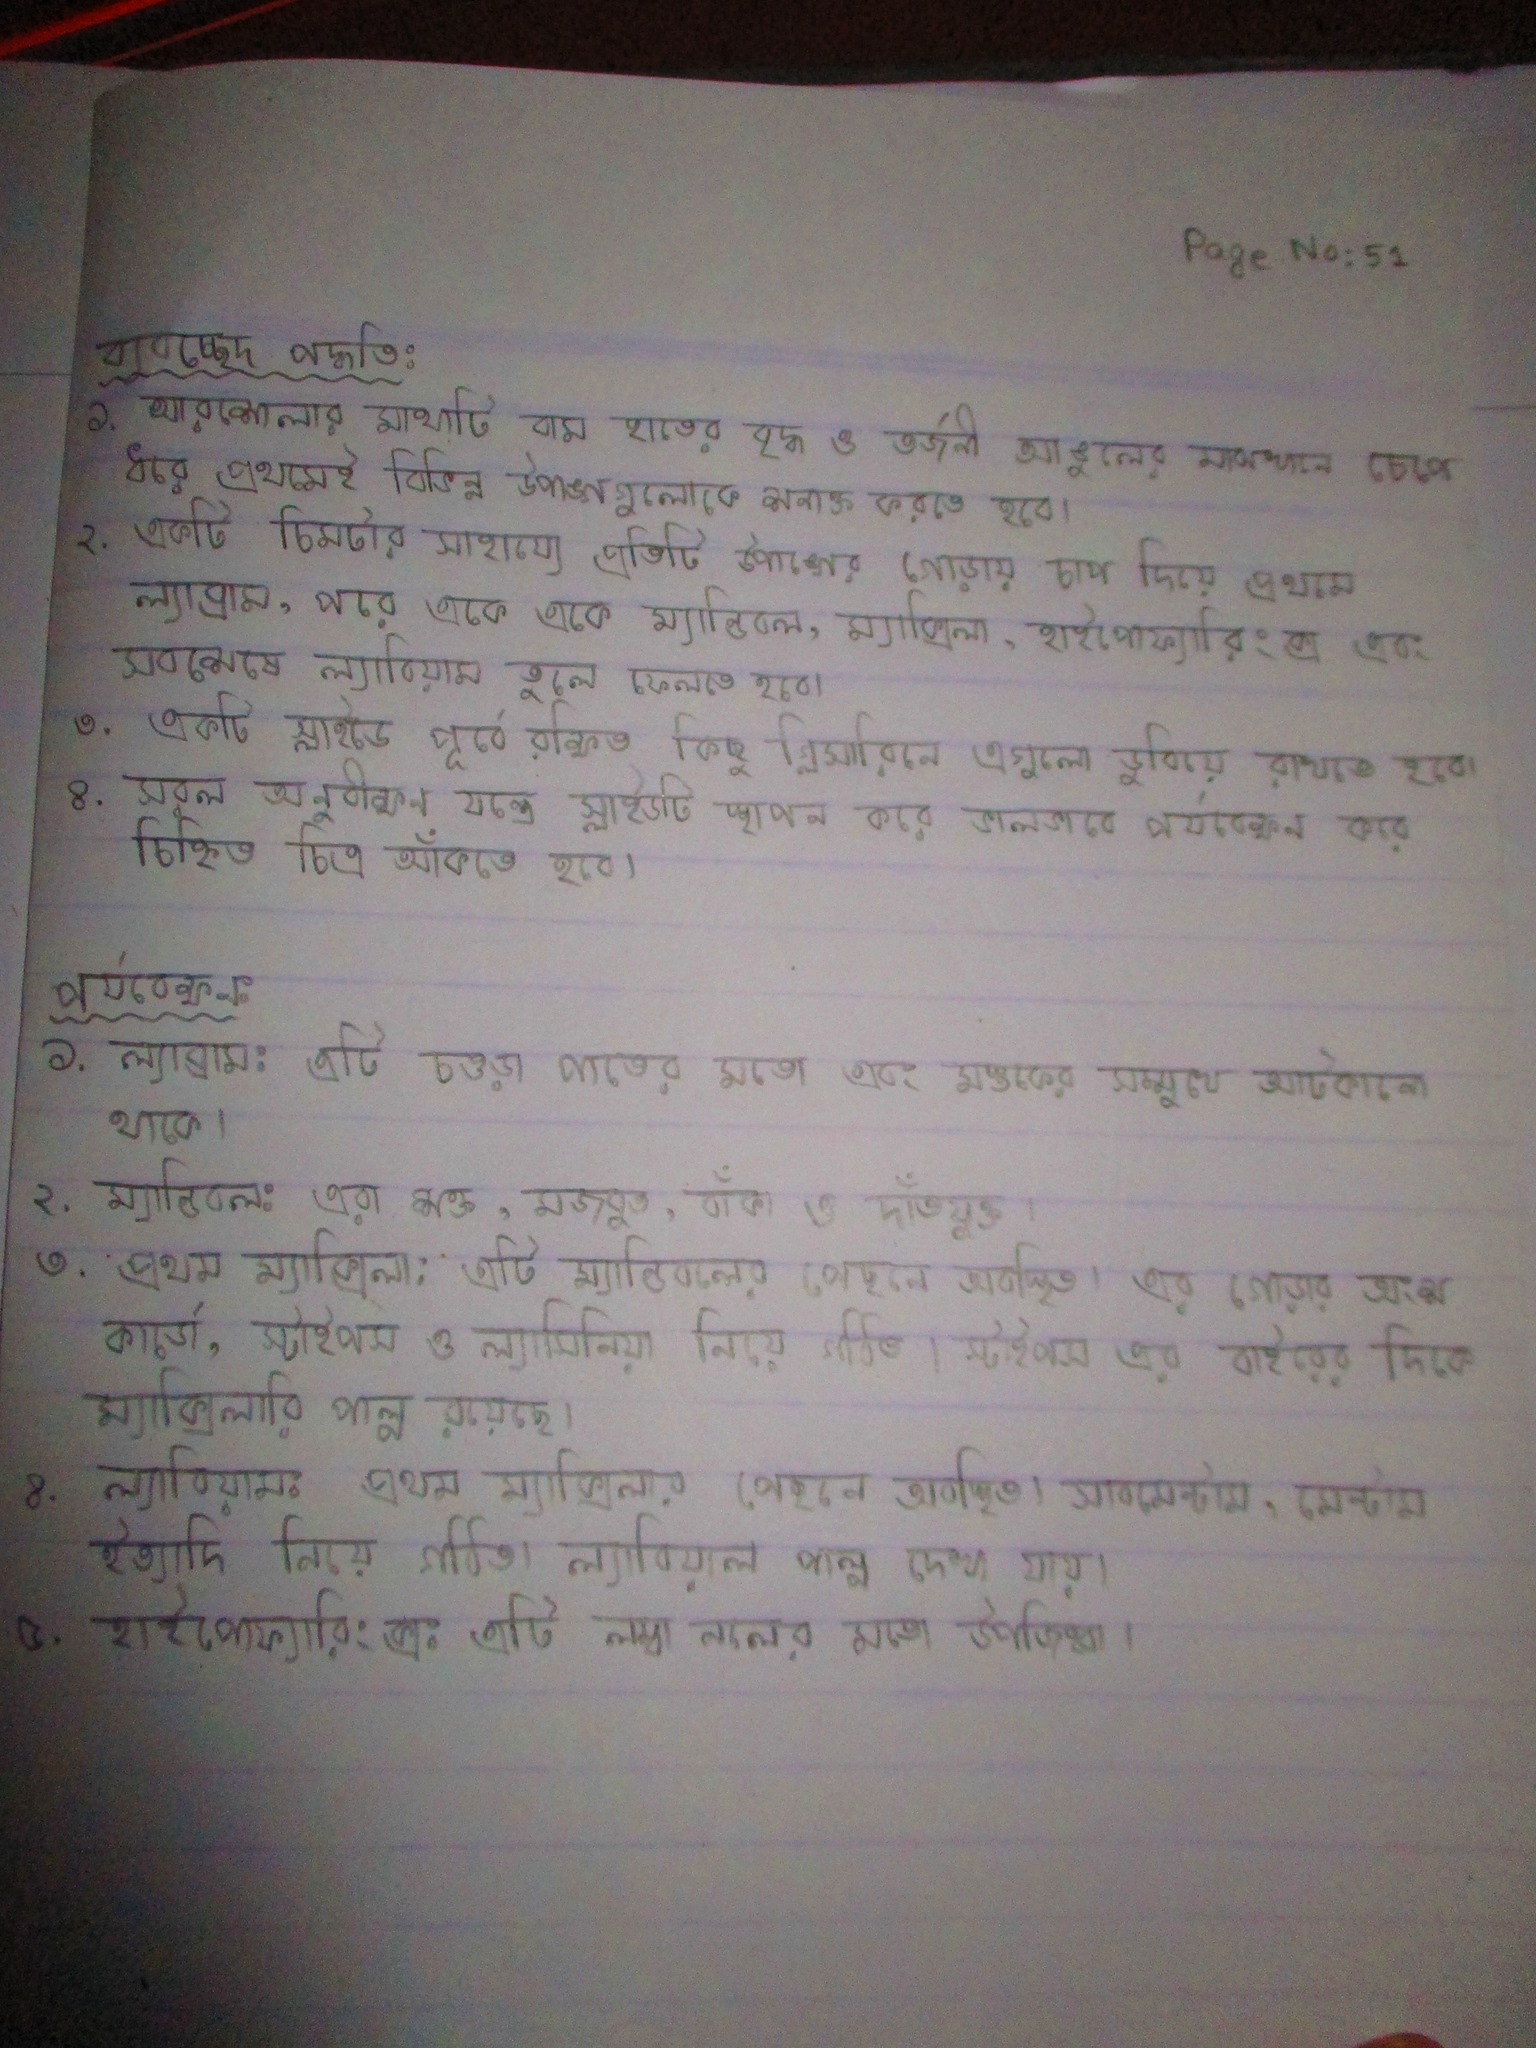 Page No: 51
ব্যবচ্ছেদ পদ্ধতিঃ
১. আরশোলার মাথাটি বাম হাতের বৃদ্ধ ও তর্জনী আঙুলের মাঝখানে চেপে
ধরে প্রথমেই বিভিন্ন উপাঙ্গগুলোকে শনাক্ত করতে হবে।
২. একটি চিমটার সাহায্যে প্রতিটি উপাঙ্গের গোড়ায় চাপ দিয়ে প্রথমে
ল্যাব্রাম, পরে একে একে ম্যান্ডিবল, ম্যাক্সিলা, হাইপোফ্যারিংক্স এবং
সবশেষে ল্যাবিয়াম তুলে ফেলতে হবে।
৩. একটি স্লাইডে পূর্বে রক্ষিত কিছু গ্লিসারিনে এগুলো ডুবিয়ে রাখতে হবে।
৪. সরল অনুবীক্ষণ যন্ত্রে স্লাইডটি স্থাপন করে ভালভাবে পর্যবেক্ষন করে
চিহ্নিত চিত্র আঁকতে হবে।
পর্যবেক্ষনঃ
১. ল্যাব্রামঃ এটি চওড়া পাতের মতো এবং মস্তকের সম্মুখে আটকানো
থাকে।
২. ম্যান্ডিবলঃ এরা শক্ত, মজবুত, বাঁকা ও দাঁতযুক্ত।
৩. প্রথম ম্যাক্সিলা: এটি ম্যান্ডিবলের পেছনে অবস্থিত। এর গোড়ার অংশ
কার্ডো, স্টাইপস ও ল্যাসিনিয়া নিয়ে গঠিত। স্টাইপস এর বাইরের দিকে
ম্যাক্সিলারি পাল্প রয়েছে।
৪. ল্যাবিয়ামঃ প্রথম ম্যাক্সিলার পেছনে অবস্থিত। সাবমেন্টাম, মেন্টাম
ইত্যাদি নিয়ে গঠিত। ল্যাবিয়াল পাল্প দেখা যায়।
৫. হাইপোফ্যারিংক্সঃ এটি লম্বা নলের মতো উপজিহ্বা।